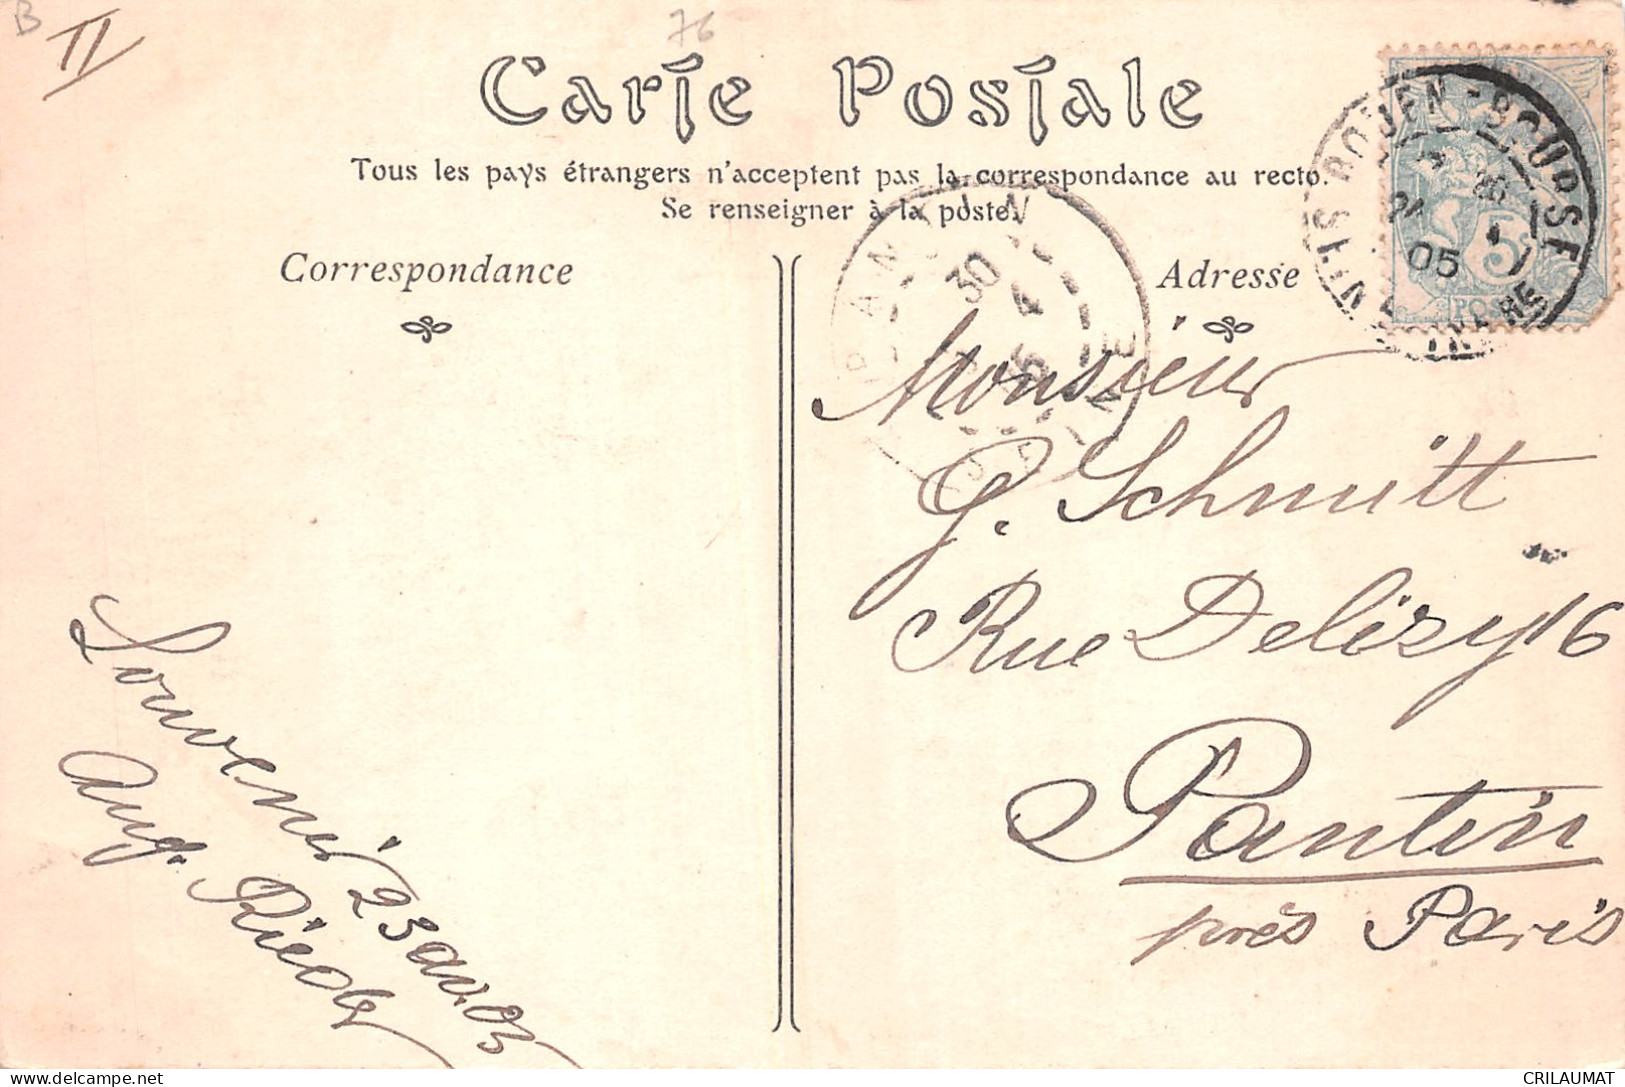 B
76
Carte Postale
Tous les pays étrangers n'acceptent pas la correspondance au recto.
Se renseigner à la poste.
Correspondance
Adresse
ROUEN - BOURSE
05
5c
PANTIN
30
4
05
SEINE
Monsieur
G. Schmitt
Rue Delizy 16
Pantin
près Paris
Souvenir 23 av. 05
Aug. Rieder
CRILAUMAT